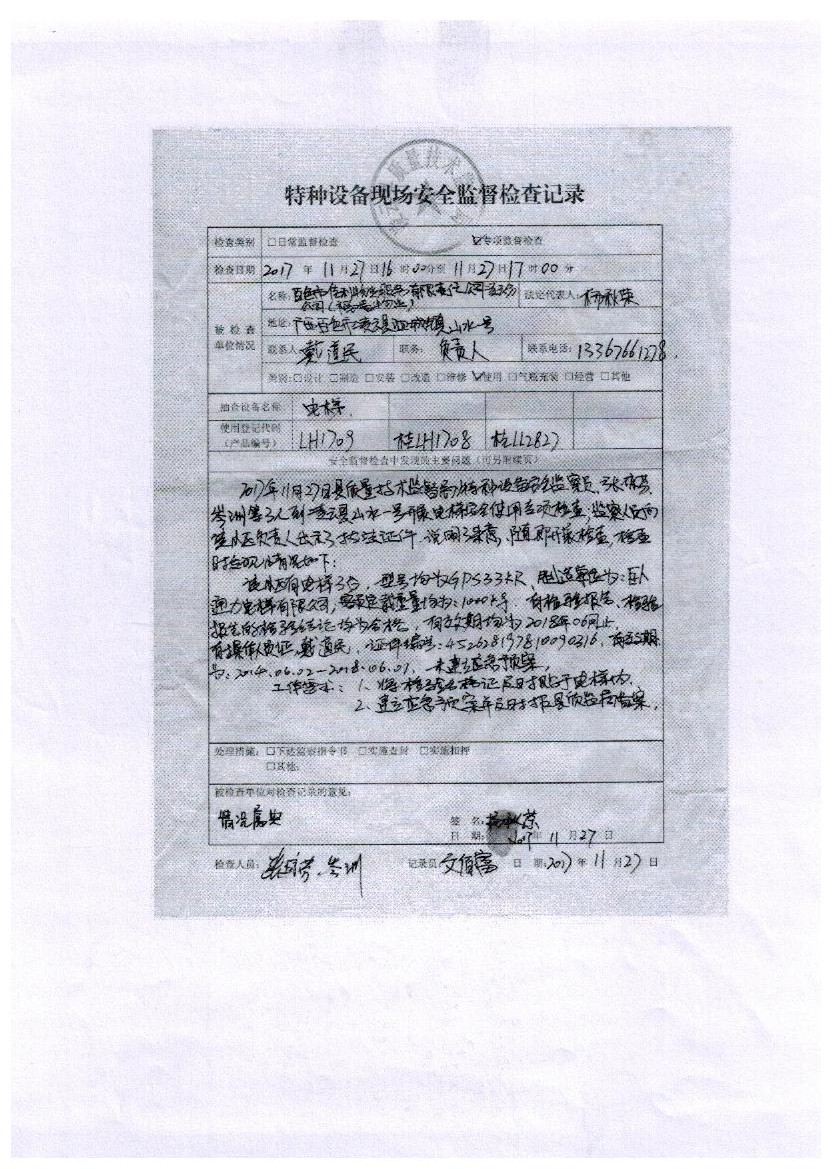 质量技术
特种设备现场安全监督检查记录
检查类别 □日常监督检查 ☑专项监督检查
检查日期 2017 年 11月27日16时00分至 11月27日17时00分
名称: 百色市 有限责任公司
公司 法定代表人: 杨秋荣
地址: 广西百色市凌云县泗城镇山水一号
被检查
单位情况 联系人: 戴道民 职务: 负责人 联系电话: 13367661278
类别: □设计 □制造 □安装 □改造 □维修 ☑使用 □气瓶充装 □经营 □其他
抽查设备名称 电梯
使用登记代码
(产品编号) LH1709 桂LH1708 桂LL2827
安全监督检查中发现的主要问题(可另附续页)
2017年11月27日县质量技术监督局特种设备安全监察员
岑洲等3人到凌云县山水一号开展电梯安全使用专项检查,监察人员向
负责人出示了执法证件,说明了来意,随即开展检查,检查
时发现情况如下:
该小区有电梯3台,型号均为GPS33KR,制造单位为:巨人
通力电梯有限公司,额定载重量均为:1000kg 有检验报告,检验
报告的检验结论均为合格,有效期均为2018年06月止,
有操作人员证,戴道民,证件编号:452628197810090316,有效期
为:2014.06.02-2018.06.01,未建立应急预案。
工作要求: 1、将检验合格证及时贴于电梯内,
2、建立应急预案并及时报县质监局备案。
处理措施: □下达监察指令书 □实施查封 □实施扣押
□其他:
被检查单位对检查记录的意见:
情况属实 签 名: 杨秋荣
日 期: 2017年 11月27日
检查人员: 岑洲 记录员: 文佰富 日 期: 2017年 11月27日